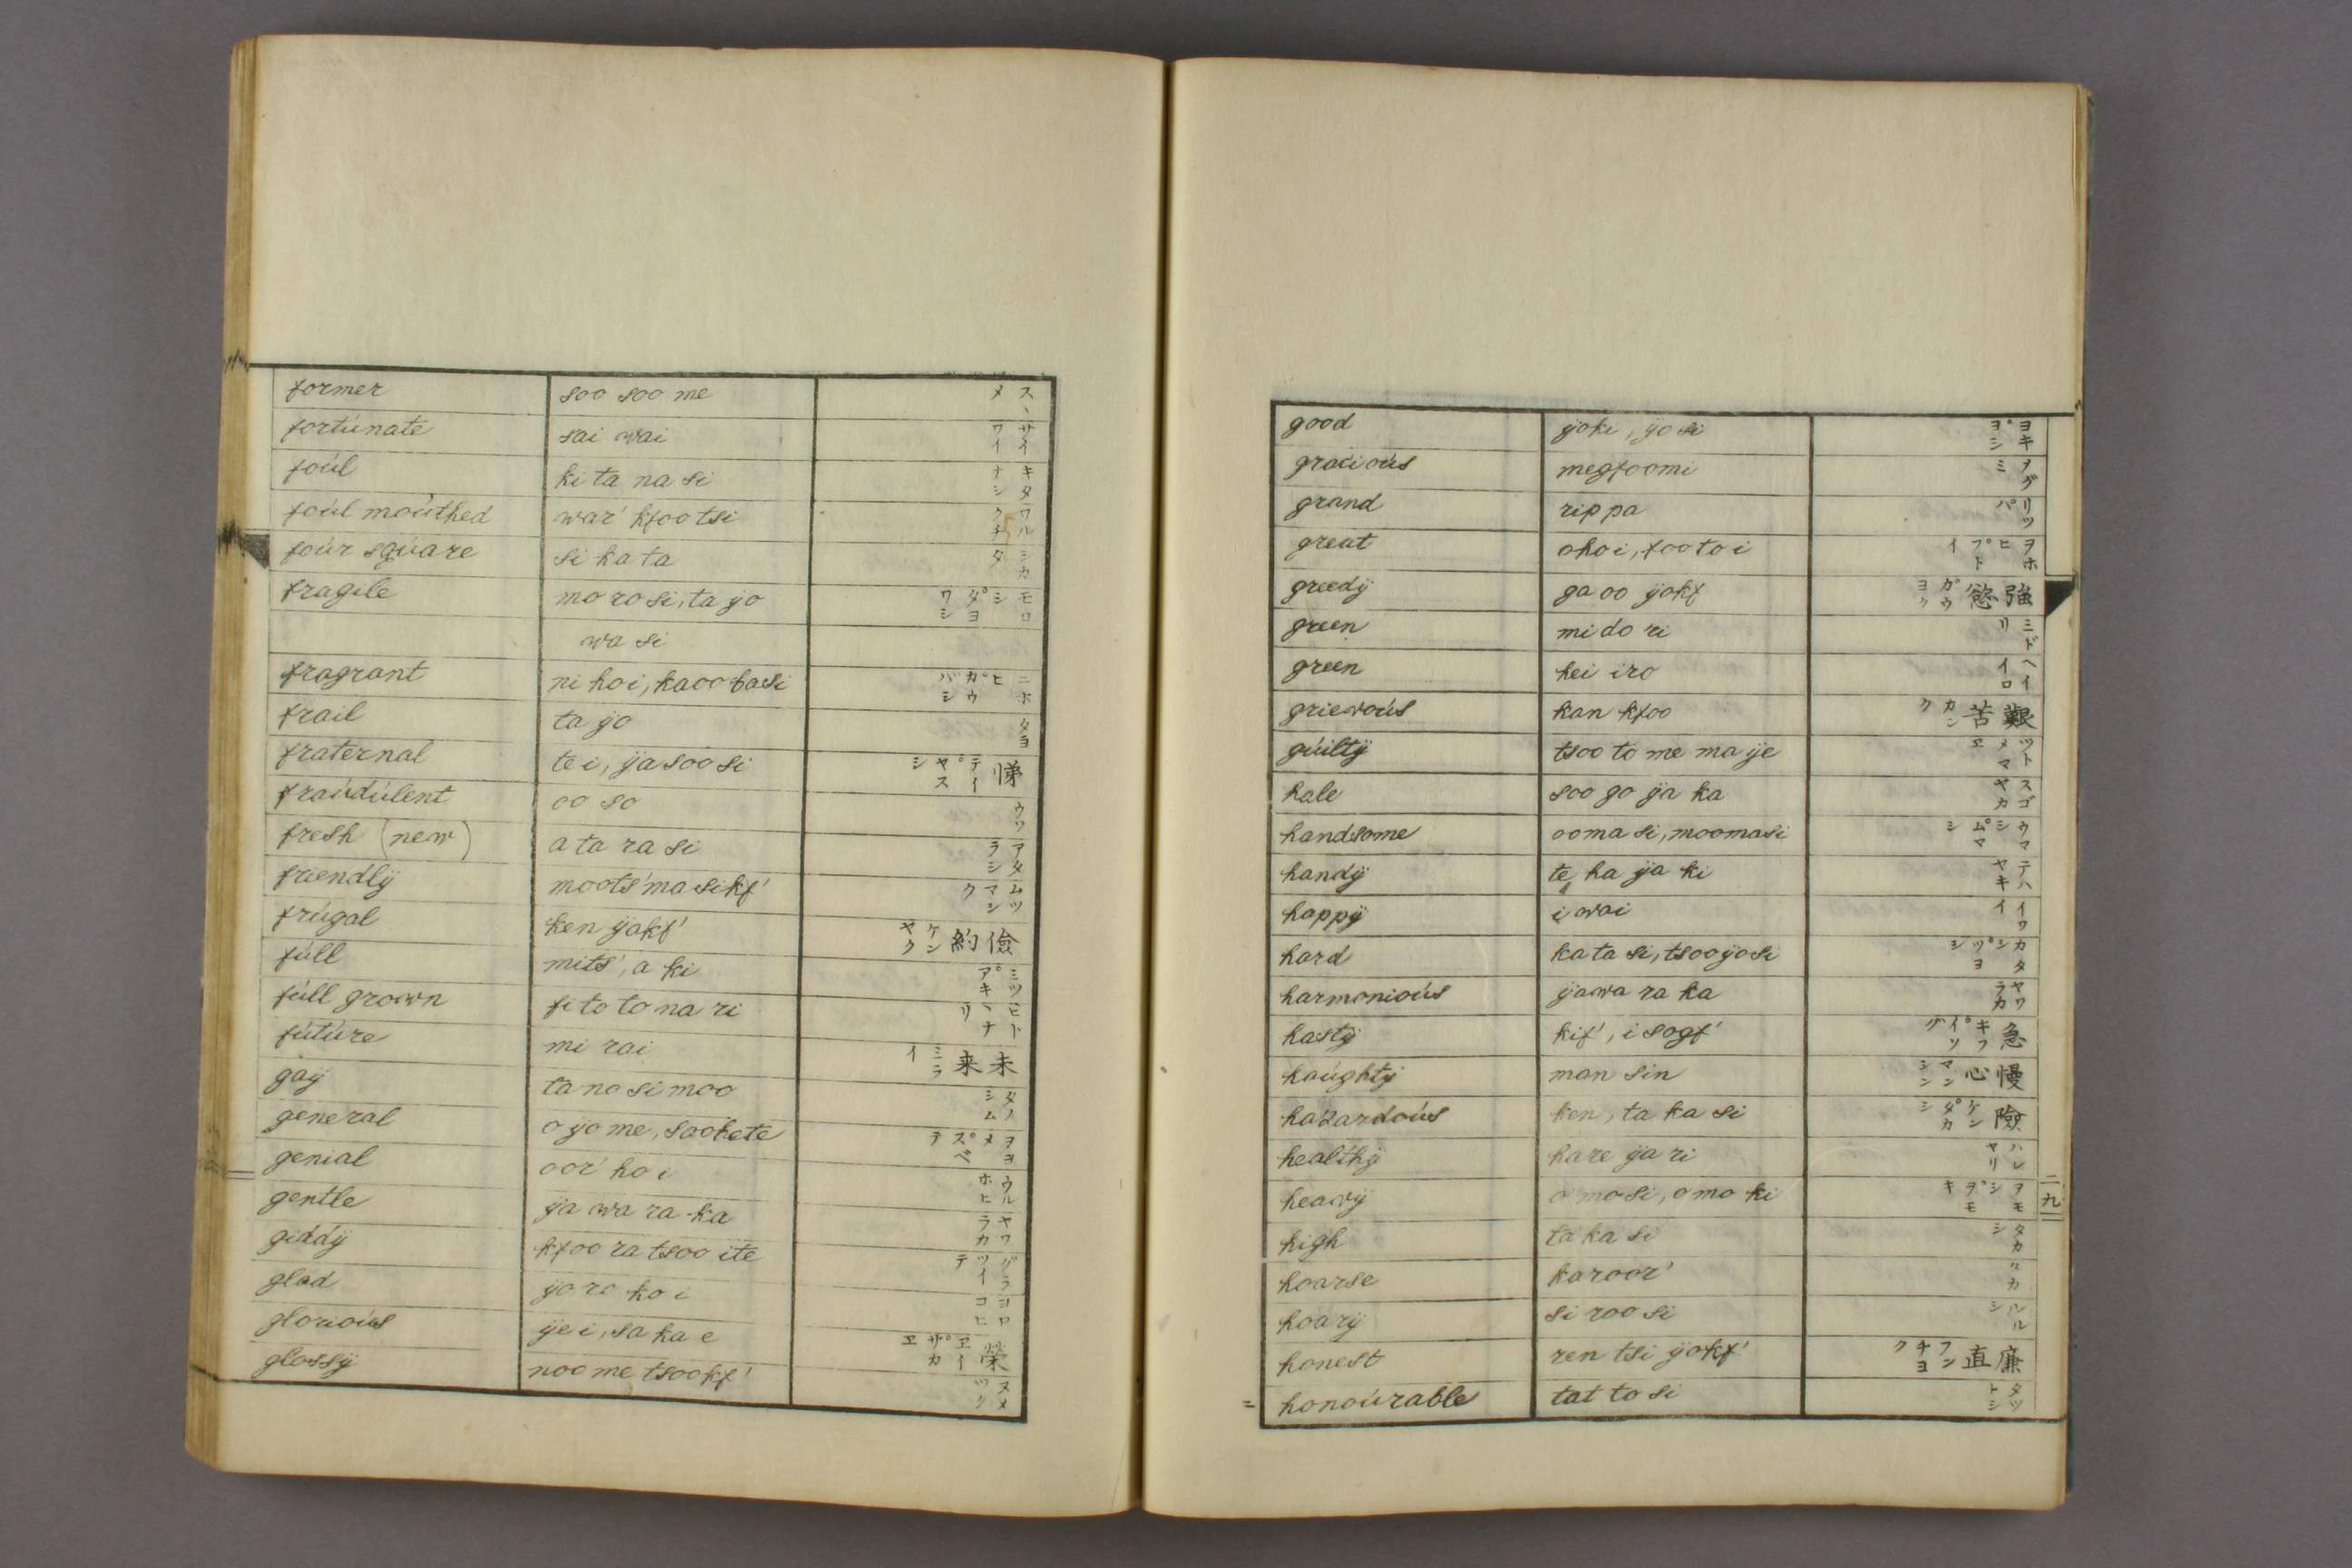 former soo soo me スヽメ
fortúnate sai wai サイワイ
foúl ki ta na si キタナシ
foúl moúthed war' kfoo tsi ワルクチ
foúr sqúare si ka ta シカタ
fragile mo ro si, ta yo モロシ タヨワシ
wa si
fragrant ni ho i, kaoo basi ニホヒ カウバシ
frail ta yo タヨ
fraternal te i, ÿa soo si 悌 テイ ヤスシ
fraúdúlent oo so ウソ
fresh (new) a ta ra si アタラシ
friendlÿ moots' ma si kf' ムツマシク
frúgal ken ÿakf' 儉約 ケンヤク
fúll mits', a ki ミツ アキ
fúll grown fi to to na ri ヒトヽナリ
fútúre mi rai 未来 ミライ
gaÿ ta no si moo タノシム
general o ÿo me, soobete ヲヨメ スベテ
genial oor' ho i ウルホヒ
gentle ÿa wa ra ka ヤワラカ
giddÿ kfoo ra tsoo ite グラツイテ
glad ÿo ro ko i ヨロコヒ
glorioús ÿe i, sa ka e 榮 ヱイ サカヱ
glossÿ noo me tsookf' ヌメツク
good ÿoki, ÿo si ヨキ ヨシ
gracioús megfoomi メグミ
grand rip pa リツパ
great oho i, foo to i ヲホヒ フトイ
greedÿ ga oo ÿokf 強慾 ガウヨク
green mi do ri ミドリ
green hei iro ヘイイロ
griewoús kan kfoo 艱苦 カンク
gúiltÿ tsoo to me ma ÿe ツトメマヱ
hale soo go ÿa ka スゴヤカ
handsome ooma si, moomasi ウマシ ムマシ
handÿ te ha ÿa ki テハヤキ
happÿ i wai イワイ
hard ka ta si, tsooÿosi カタシ ツヨシ
harmonioús ÿawa ra ka ヤワラカ
hastÿ kif', i sogf' 急 キフ イソグ
haúghtÿ man sin 慢心 マンシン
hazardoús ken, ta ka si 險 ケン タカシ
healthÿ hare ÿa ri ハレヤリ
heawÿ o mo si, o mo ki ヲモシ ヲモキ
high ta ka si タカシ
hoarse karoor'
hoarÿ si roo si
honest ren tsi ÿokf' 廉直
honoúrable tat to si タツトシ
二九